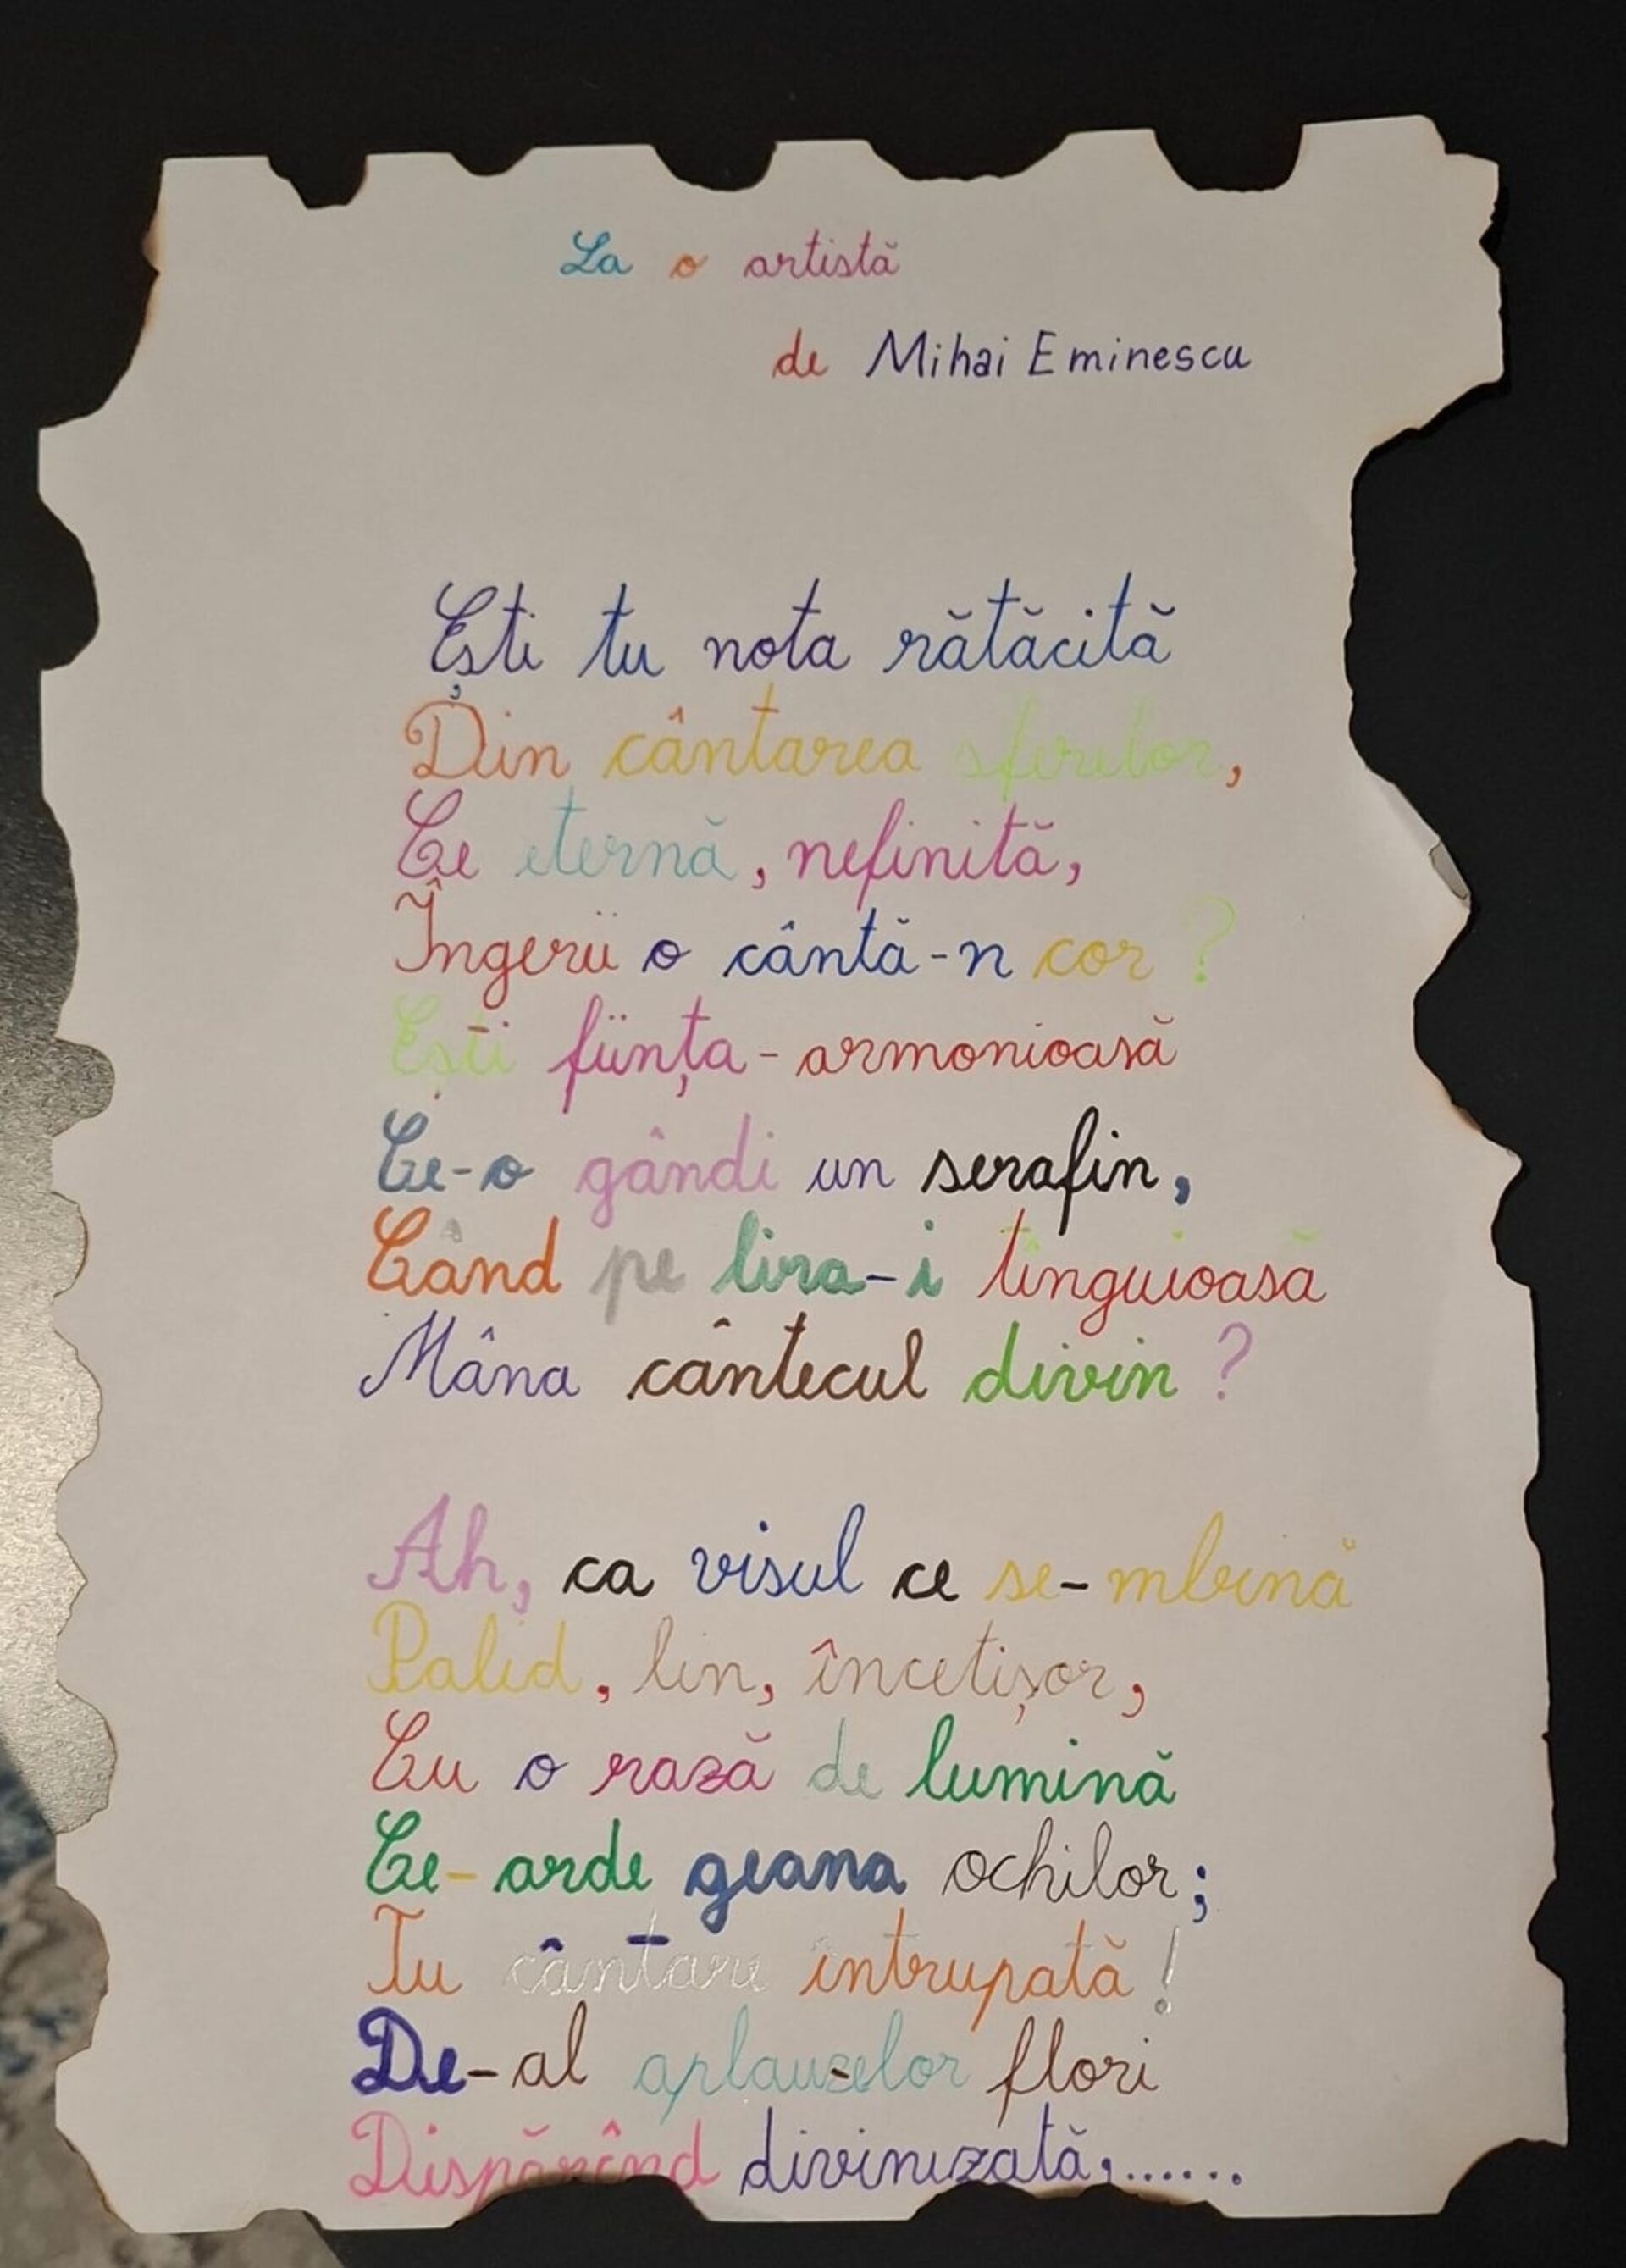 La o artistă
de Mihai Eminescu
Ești tu nota rătăcită
Din cântarea sferelor,
Ce eternă, nefinită,
Îngerii o cântă-n cor?
Ești ființa-armonioasă
Ce-o gândi un serafin,
Când pe lira-i tînguioasă
Mâna cântecul divin?
Ah, ca visul ce se-mbină
Palid, lin, încetișor,
Cu o rază de lumină
Ce-arde geana ochilor;
Tu cântare întrupată!
De-al aplauzelor flori
Dispărînd divinizată,......